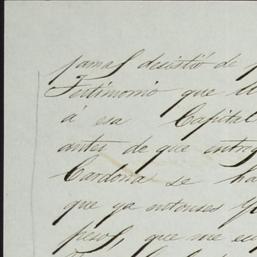 jamas desistió de
Testimonio que
á esa Capital
antes de que entreg
Cardona se ha
que ya entonses
pesos, que me